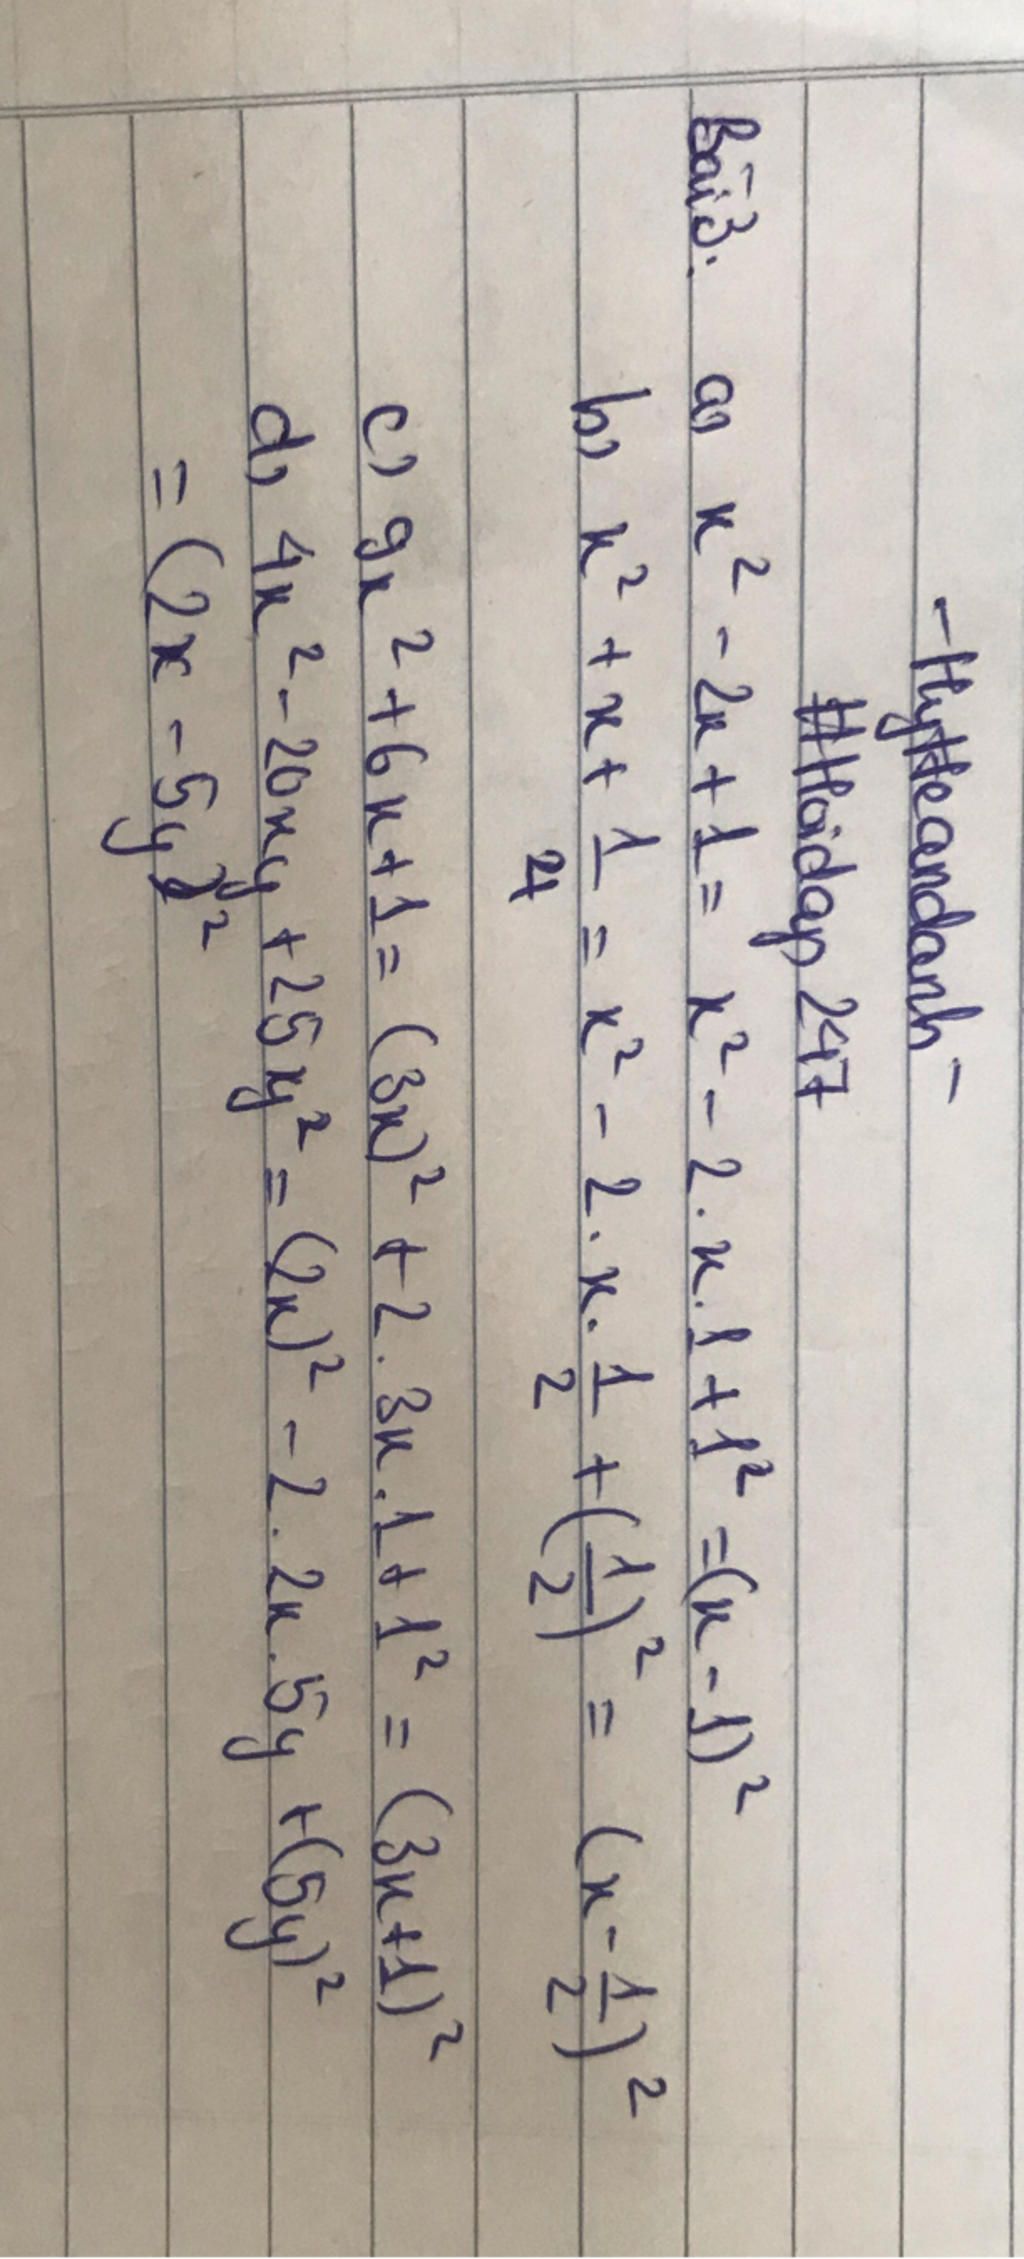 -HyHeandanh-
#Hoidap247
Bài 3. a, x² - 2x + 1 = x² - 2.x.1 + 1² = (x - 1)²
b, x² + x + 1/4 = x² - 2.x.1/2 + (1/2)² = (x - 1/2)²
c, 9x² + 6x + 1 = (3x)² + 2.3x.1 + 1² = (3x+1)²
d, 4x² - 20xy + 25y² = (2x)² - 2.2x.5y + (5y)²
= (2x - 5y)²